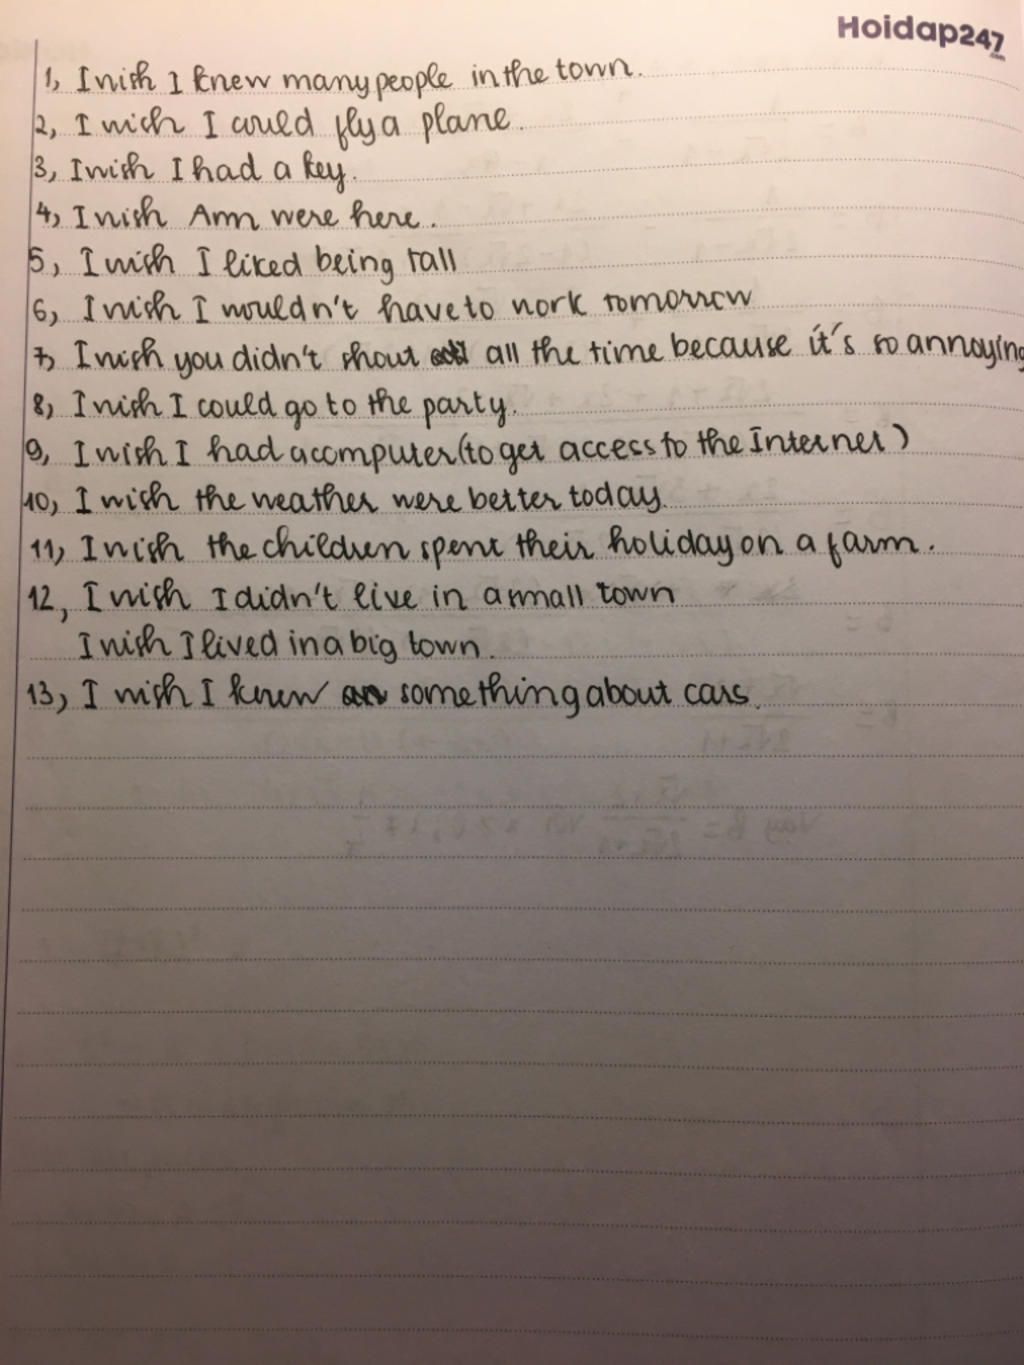 Hoidap247
.com
1, I wish I knew many people in the town.
2, I wish I could fly a plane.
3, I wish I had a key.
4, I wish Ann were here.
5, I wish I liked being tall
6, I wish I wouldn't have to work tomorrow
7, I wish you didn't shout all the time because it's so annoying
8, I wish I could go to the party.
9, I wish I had a computer (to get access to the Internet)
10, I wish the weather were better today.
11, I wish the children spent their holiday on a farm.
12, I wish I didn't live in a small town
I wish I lived in a big town.
13, I wish I knew something about cars.